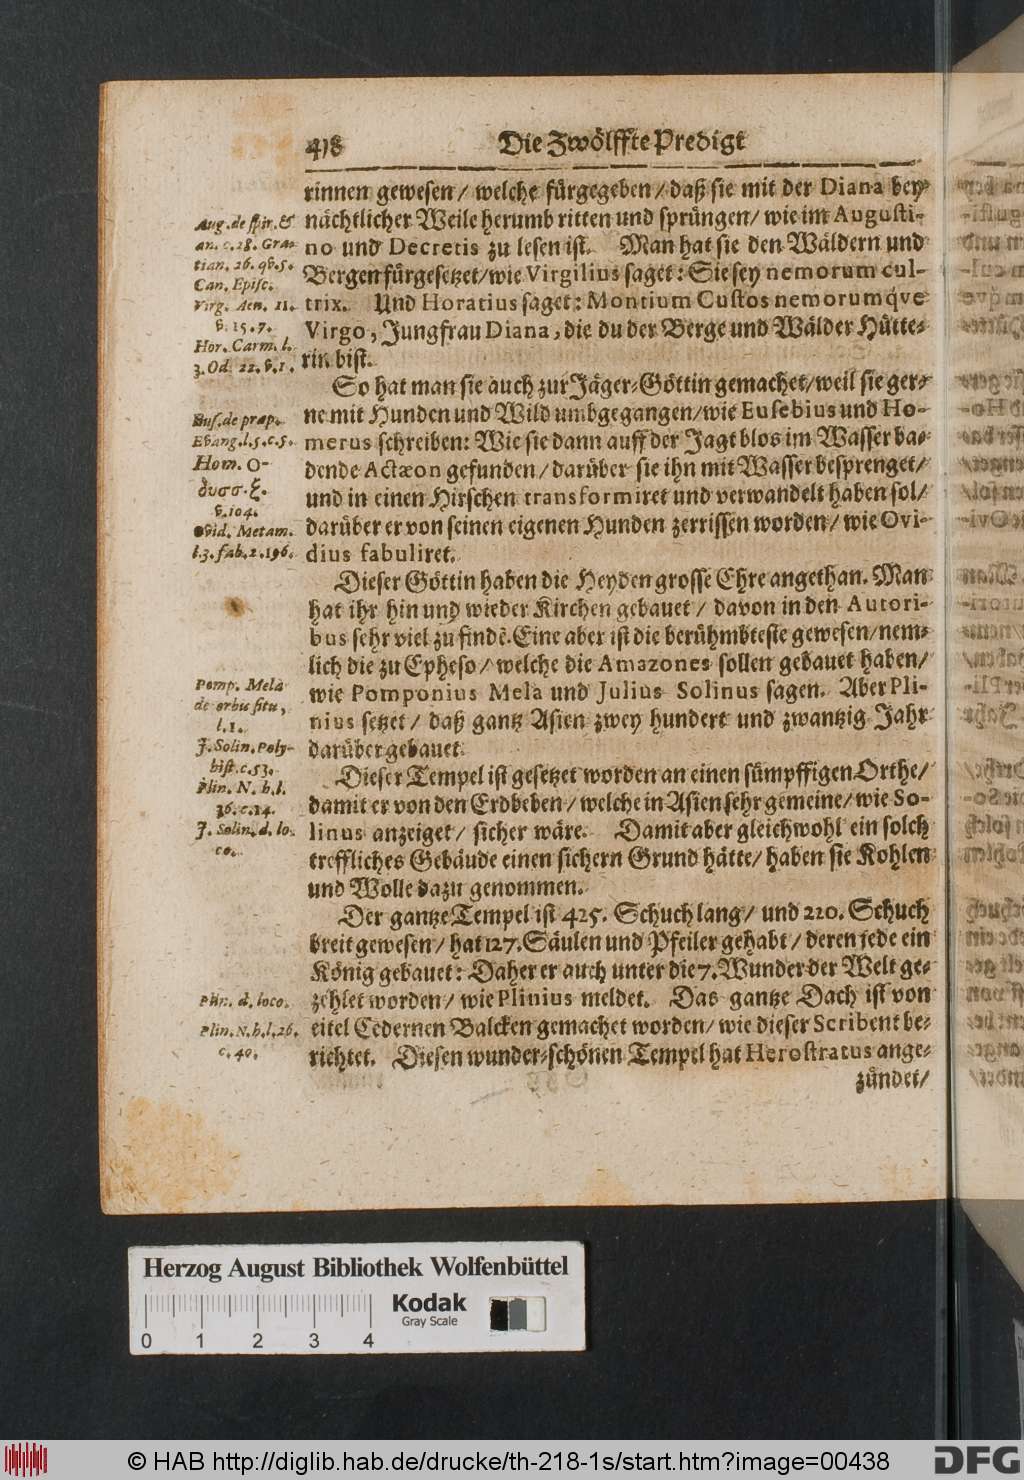 418 Die Zwölffte Predigt
rinnen gewesen / welche fürgegeben / daß sie mit der Diana bey
nächtlicher Weile herumb ritten und sprüngen / wie im Augusti-
no und Decretis zu lesen ist. Man hat sie den Wäldern und
Bergen fürgesetzet / wie Virgilius saget: Sie sey nemorum cul-
trix. Und Horatius saget: Montium Custos nemorumq́ve
Virgo, Jungfrau Diana, die du der Berge und Wälder Hütte-
rin bist.
So hat man sie auch zur Jäger-Göttin gemachet / weil sie ger-
ne mit Hunden und Wild umbgegangen / wie Eusebius und Ho-
merus schreiben: Wie sie dann auff der Jagt blos im Wasser ba-
dende Actæon gefunden / darüber sie ihn mit Wasser besprenget /
und in einen Hirschen transformiret und verwandelt haben sol /
darüber er von seinen eigenen Hunden zerrissen worden / wie Ovi-
dius fabuliret.
Dieser Göttin haben die Heyden grosse Ehre angethan. Man
hat ihr hin und wieder Kirchen gebauet / davon in den Autori-
bus sehr viel zu findẽ. Eine aber ist die berühmbteste gewesen / nem-
lich die zu Epheso / welche die Amazones sollen gebauet haben /
wie Pomponius Mela und Julius Solinus sagen. Aber Pli-
nius setzet / daß gantz Asien zwey hundert und zwantzig Jahr
darüber gebauet.
Dieser Tempel ist gesetzet worden an einen sümpffigen Orthe /
damit er von den Erdbeben / welche in Asien sehr gemeine / wie So-
linus anzeiget / sicher wäre. Damit aber gleichwohl ein solch
treffliches Gebäude einen sichern Grund hätte / haben sie Kohlen
und Wolle dazu genommen.
Der gantze Tempel ist 425. Schuch lang / und 220. Schuch
breit gewesen / hat 127. Säulen und Pfeiler gehabt / deren jede ein
König gebauet: Daher er auch unter die 7. Wunder der Welt ge-
zehlet worden / wie Plinius meldet. Das gantze Dach ist von
eitel Cedernen Balcken gemachet worden / wie dieser Scribent be-
richtet. Diesen wunder-schönen Tempel hat Herostratus ange-
zündet /
Aug. de spir. &
an. c. 28. Gra-
tian. 26. qv. 5.
Can. Episc.
Virg. Aen. 11.
v. 15. 7.
Hor. Carm. l.
3. Od. 22. v. 1.
Eus. de præp.
Evang. l. 5. c. 5.
Hom. O-
δυσσ. ξ.
v. 104.
Ovid. Metam.
l. 3. fab. 2. 196.
Pomp. Mela
de orbis situ,
l. 1.
J. Solin. Poly-
hist. c. 53.
Plin. N. h. l.
36. c. 14.
J. Solin. d. lo-
co.
Plin. d. loco.
Plin. N. h. l. 26.
c. 40.
Herzog August Bibliothek Wolfenbüttel
0 1 2 3 4
Kodak
Gray Scale
© HAB http://diglib.hab.de/drucke/th-218-1s/start.htm?image=00438
DFG